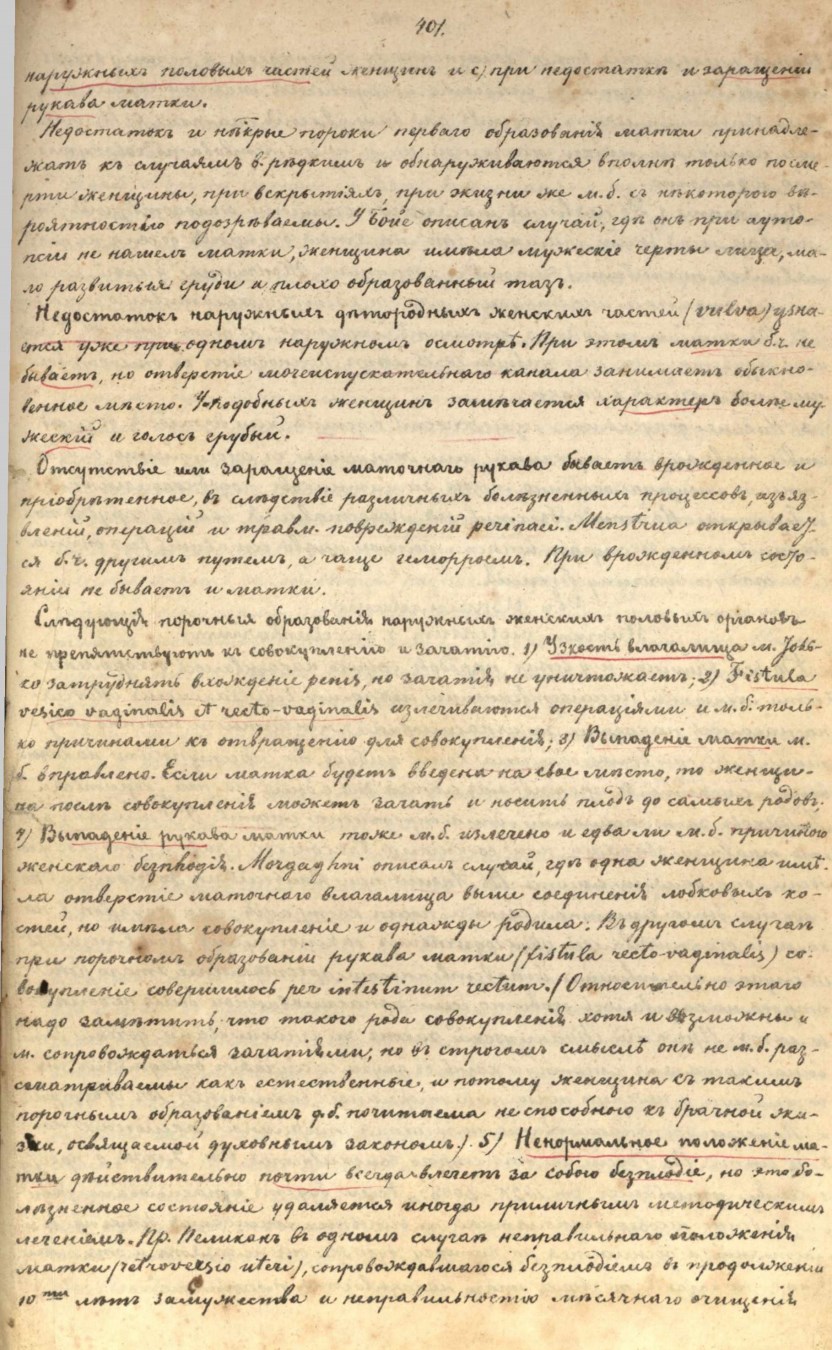 401.
наружныхъ половыхъ частей женщинъ и с) при недостаткѣ и заращеніи
рукава матки.
Недостатокъ и нѣкрые пороки перваго образованія матки принадле-
жатъ къ случаямъ в. рѣдкимъ и обнаруживаются вполнѣ только посме-
рти женщины, при вскрытіяхъ, при жизни же м. б. съ нѣкоторого вѣ-
роятностію подозрѣваемы. У описан случай, гдѣ онъ при ауто-
псіи не нашелъ матки, женщина имѣла мужескіе черты лица, ма-
ло развитыя груди и плохо образованный тазъ.
Недостатокъ наружныхъ дѣтородныхъ женскихъ частей (vulva) узна-
ется уже при одномъ наружномъ осмотрѣ. При этомъ матки б. ч. не
бываетъ, но отверстіе мочеиспускательнаго канала занимаетъ обыкно-
венное мѣсто. У подобныхъ женщинъ замѣчается характеръ болѣе му-
жескій и голосъ грубый.
Отсутствіе или заращеніе маточнаго рукава бываетъ врожденное и
пріобрѣтенное, въ слѣдствіе различныхъ болѣзненныхъ процессовъ, изъяз-
вленій, операцій и травм. поврежденій perinaei. Menstrua открывает-
ся б. ч. другимъ путемъ, а чаще геморроемъ. При врожденномъ состо-
яніи не бываетъ и матки.
Слѣдующія порочныя образованія наружныхъ женскихъ половыхъ органовъ
не препятствуютъ къ совокупленію и зачатію. 1) Узкость влагалища м. толь-
ко затруднять вхожденіе penis, но зачатія не уничтожаетъ; 2) Fistula
vesico vaginalis et recto-vaginalis излечиваются операціями и м. б. толь-
ко причинами къ отвращенію для совокупленія; 3) Выпаденіе матки м.
б. вправлено. Если матка будетъ введена на свое мѣсто, то женщи-
на послѣ совокупленія можетъ зачать и носить плодъ до самыхъ родовъ;
4) Выпаденіе рукава матки тоже м. б. излечено и едва ли м. б. причиною
женскаго безплодія. Morgaghni описалъ случай, гдѣ одна женщина имѣ-
ла отверстіе маточнаго влагалища выше соединенія лобковыхъ ко-
стей, но имѣла совокупленіе и однажды родила. Въ другомъ случаѣ
при порочномъ образованіи рукава матки (fistula recto-vaginalis) со-
вокупленіе совершилось per intestinum rectum. (Относительно этаго
надо замѣтить, что такого рода совокупленія хотя и возможны и
м. сопровождаться зачатіями, но въ строгомъ смыслѣ онѣ не м. б. раз-
сматриваемы какъ естественные, и потому женщина съ такимъ
порочнымъ образованіемъ д. б. почитаема не способною къ брачной жи-
зни, освящаемой духовнымъ закономъ.) 5) Ненормальное положеніе ма-
тки дѣйствительно почти всегда влечетъ за собою безплодіе, но это бо-
лѣзненное состояніе удаляется иногда приличнымъ методическимъ
леченіемъ. Пр. Пеликанъ въ одномъ случаѣ неправильнаго положенія
матки (retroversio uteri), сопровождавшагося безплодіемъ въ продолженіи
10ти лѣтъ замужества и неправильностію мѣсячнаго очищенія